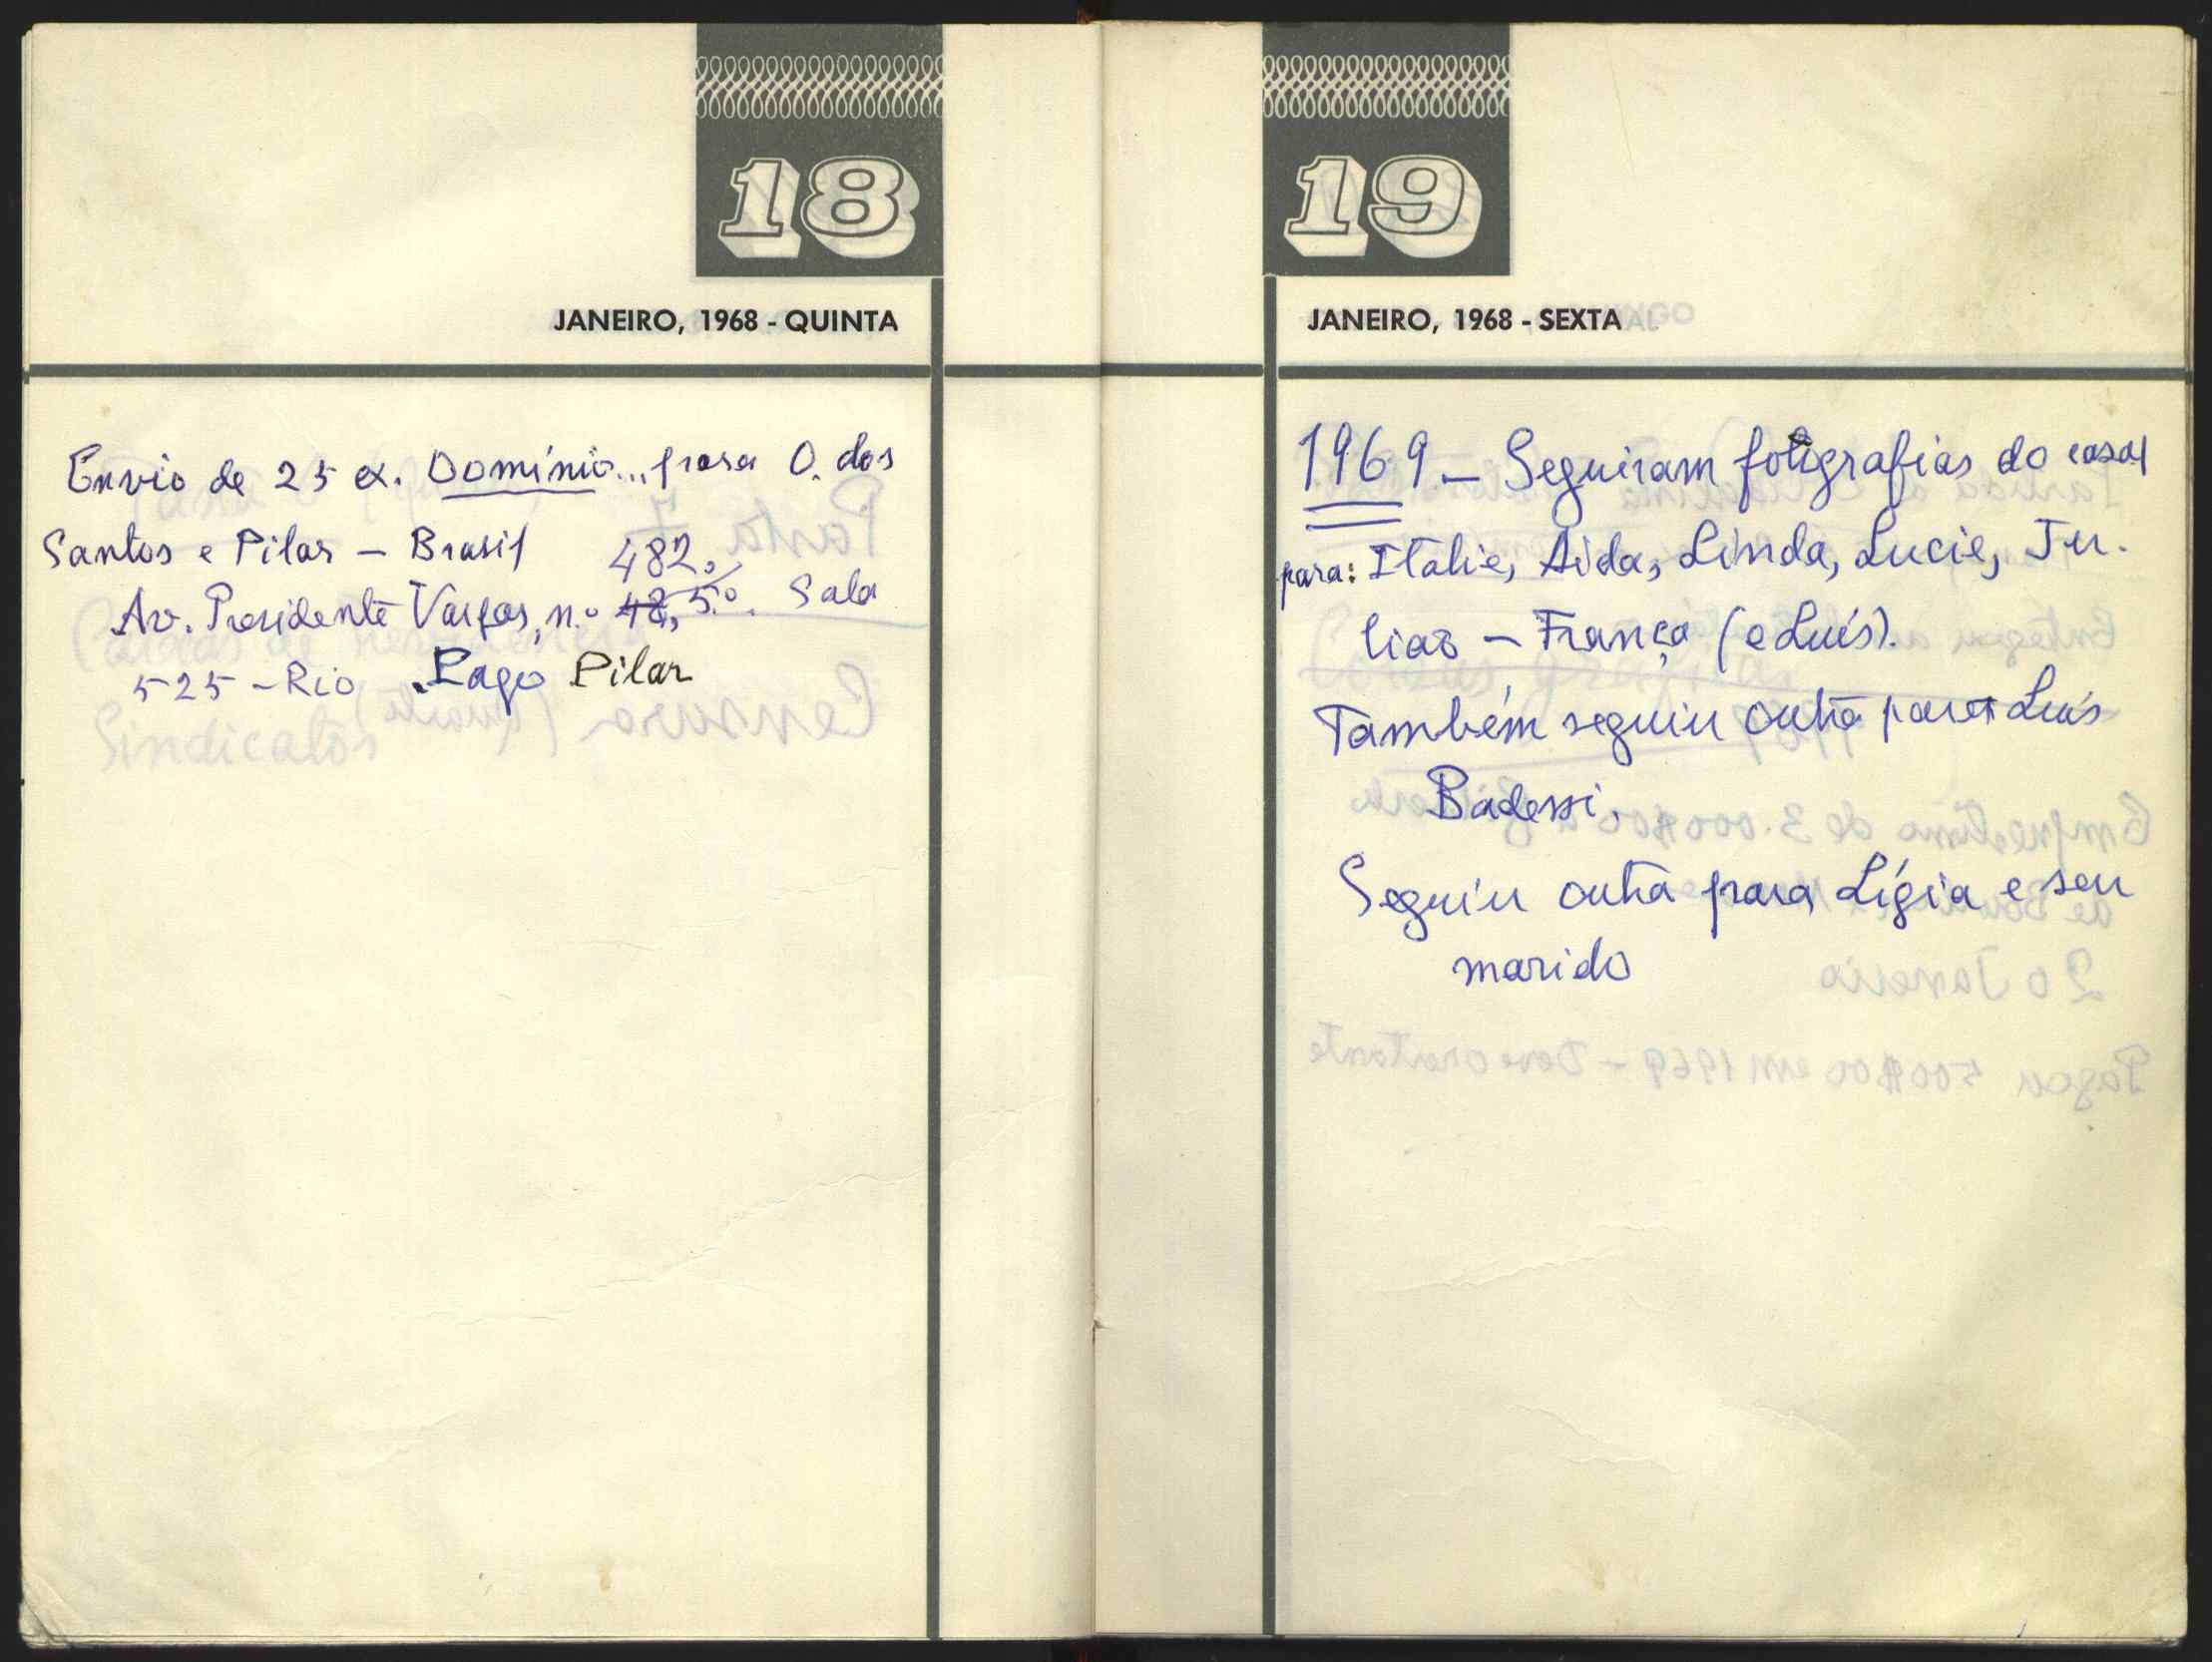 18
JANEIRO, 1968 - QUINTA
Envio de 25 ex. Domínio... para O. dos
Santos e Pilar — Brasil
482,
Av. Presidente Vargas, n.º 48, 5.º. Sala
525 - Rio . Pago Pilar
Sindicatos
19
JANEIRO, 1968 - SEXTA
1969 — Seguiram fotografias do casal
para: Italie, Aida, Linda, Lucie, Ju.
lião — França (e Luís).
Também seguiu outra para Luís
Badessi.
Seguiu outra para Lígia e seu
marido